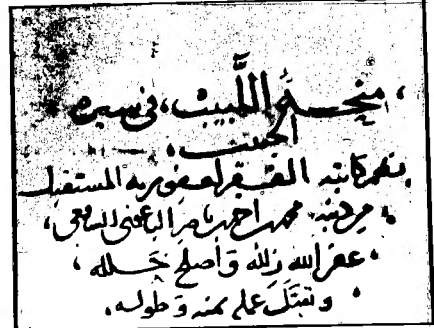 منحة اللبيب، في سيرة
الحبيب.
نظم كاتبه الفقير لعفو ربه المستقيل
من ذنبه محمد بن احمد بن ناصر الباعونى الشافعى،
عفر الله زلله وأصلح خلله،
وتقبل عمله بمنه وطوله.